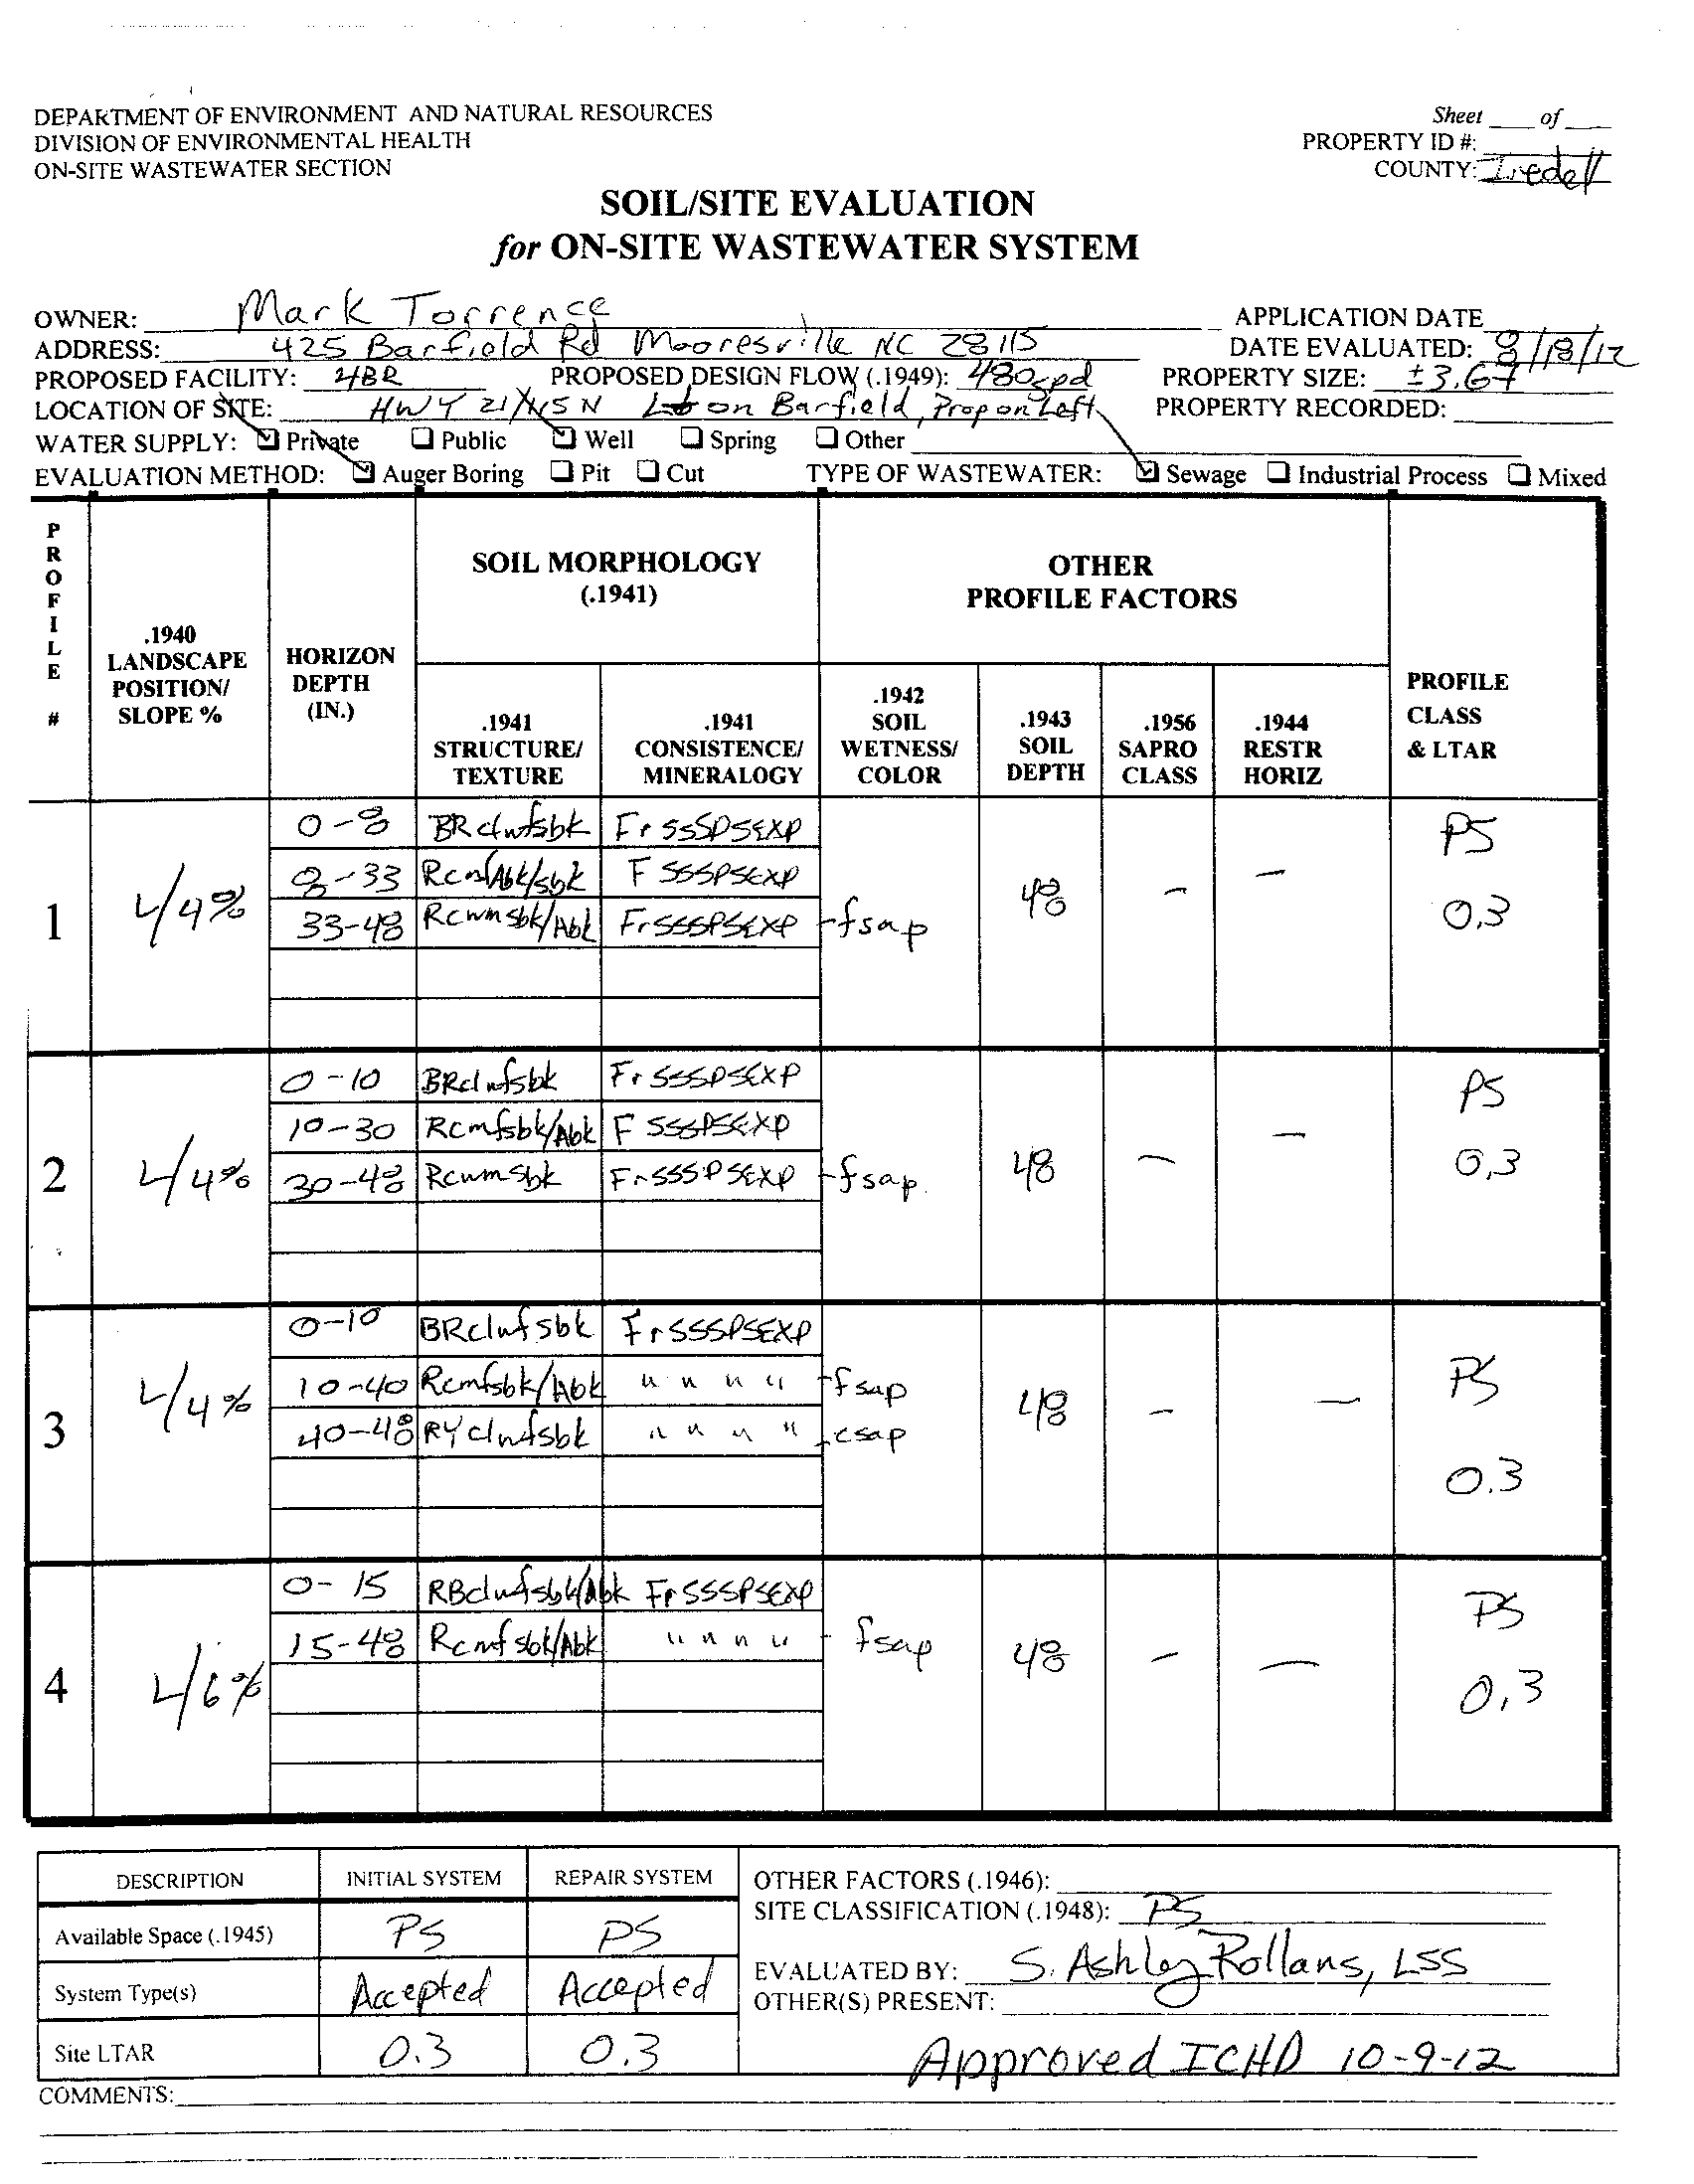 DEPARTMENT OF ENVIRONMENT AND NATURAL RESOURCES
DIVISION OF ENVIRONMENTAL HEALTH
ON-SITE WASTEWATER SECTION
Sheet ____ of ____
PROPERTY ID #:
COUNTY: Iredell
SOIL/SITE EVALUATION
for ON-SITE WASTEWATER SYSTEM
OWNER: Mark Torrence
APPLICATION DATE
ADDRESS: 425 Barfield Rd Mooresville NC 28115
DATE EVALUATED: 8/18/12
PROPOSED FACILITY: 4BR PROPOSED DESIGN FLOW (.1949): 480gpd PROPERTY SIZE: ±3.67
LOCATION OF SITE: HWY 21/115 N on Barfield, Prop on Left PROPERTY RECORDED:
WATER SUPPLY: ☑ Private ☐ Public ☑ Well ☐ Spring ☐ Other
EVALUATION METHOD: ☑ Auger Boring ☐ Pit ☐ Cut TYPE OF WASTEWATER: ☑ Sewage ☐ Industrial Process ☐ Mixed
PROFILE #
.1940 LANDSCAPE POSITION/ SLOPE %
HORIZON DEPTH (IN.)
SOIL MORPHOLOGY
(.1941)
OTHER
PROFILE FACTORS
.1941 STRUCTURE/ TEXTURE
.1941 CONSISTENCE/ MINERALOGY
.1942 SOIL WETNESS/ COLOR
.1943 SOIL DEPTH
.1956 SAPRO CLASS
.1944 RESTR HORIZ
PROFILE CLASS & LTAR
1 L/4% 48 – – PS 0.3
0-8 BRclwfsbk FrSSSPSEXP
8-33 Rcmf Abk/sbk F SSSPSEXP
33-48 Rcwmsbk/Abk FrSSSPSEXP -fsap
2 L/4% 48 – – PS 0.3
0-10 BRclwfsbk FrSSSPSEXP
10-30 Rcmfsbk/Abk F SSSPSEXP
30-48 Rcwmsbk FrSSSPSEXP -fsap
3 L/4% 48 – – PS 0.3
0-10 BRclwfsbk FrSSSPSEXP
10-40 Rcmfsbk/Abk " " " " -fsap
40-48 RYclwfsbk " " " " -csap
4 L/6% 48 – – PS 0.3
0-15 RBclwfsbk/Abk FrSSSPSEXP
15-48 Rcmfsbk/Abk " " " " - fsap
DESCRIPTION INITIAL SYSTEM REPAIR SYSTEM
Available Space (.1945) PS PS
System Type(s) Accepted Accepted
Site LTAR 0.3 0.3
OTHER FACTORS (.1946):
SITE CLASSIFICATION (.1948): PS
EVALUATED BY: S. Ashley Rollans, LSS
OTHER(S) PRESENT:
Approved ICHD 10-9-12
COMMENTS: